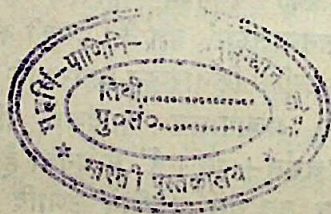 महर्षि-पाणिनि-
तिथी..............
पु०सं०..............
* भारती पुस्तकालय *